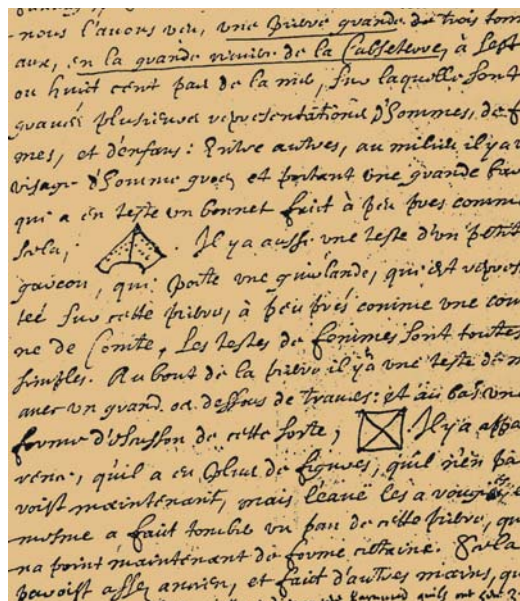 nous l'auons veu, une pierre grande de trois ton
aux, en la grande riuiere de la Cabseterre, à sept
ou huit cent pas de la mer, sur laquelle sont
graués plusieures representations d'hommes, de f
mes, et d'enfans: Entre autres, au milieu il y a v
visage d'homme gros et portant une grande bar
qui a en teste un bonnet fait à peu pres comme
scela, . Il y aussi une teste d'un petit
garcon, qui porte une guirlande, qui est repres
teé sur cette pierre, à peu prés comme une cou
ne de Comte, Les testes de femmes sont toutes
simples. Au bout de la pierre il y à une teste de m
auec un grand os dessous de trauers: et au bas une
forme d'escusson de cette sorte, . Il y a appa
rence, qu'il a eu plus de figures, qu'il n'en pa
roist maintenant, mais l'eauë les a
mesme a fait tomber un pan de cette pierre, qu
na point maintenant de forme certaine. Scela
paroist assez ancien, et fait d'autres mains, qu